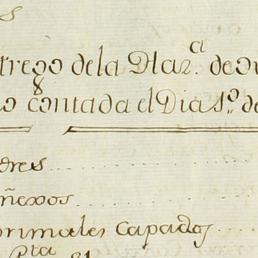 s
trego de la Haz.ª de ou
o contada el Dia 1.º de
dres
ñexos
primales Capados
Pta